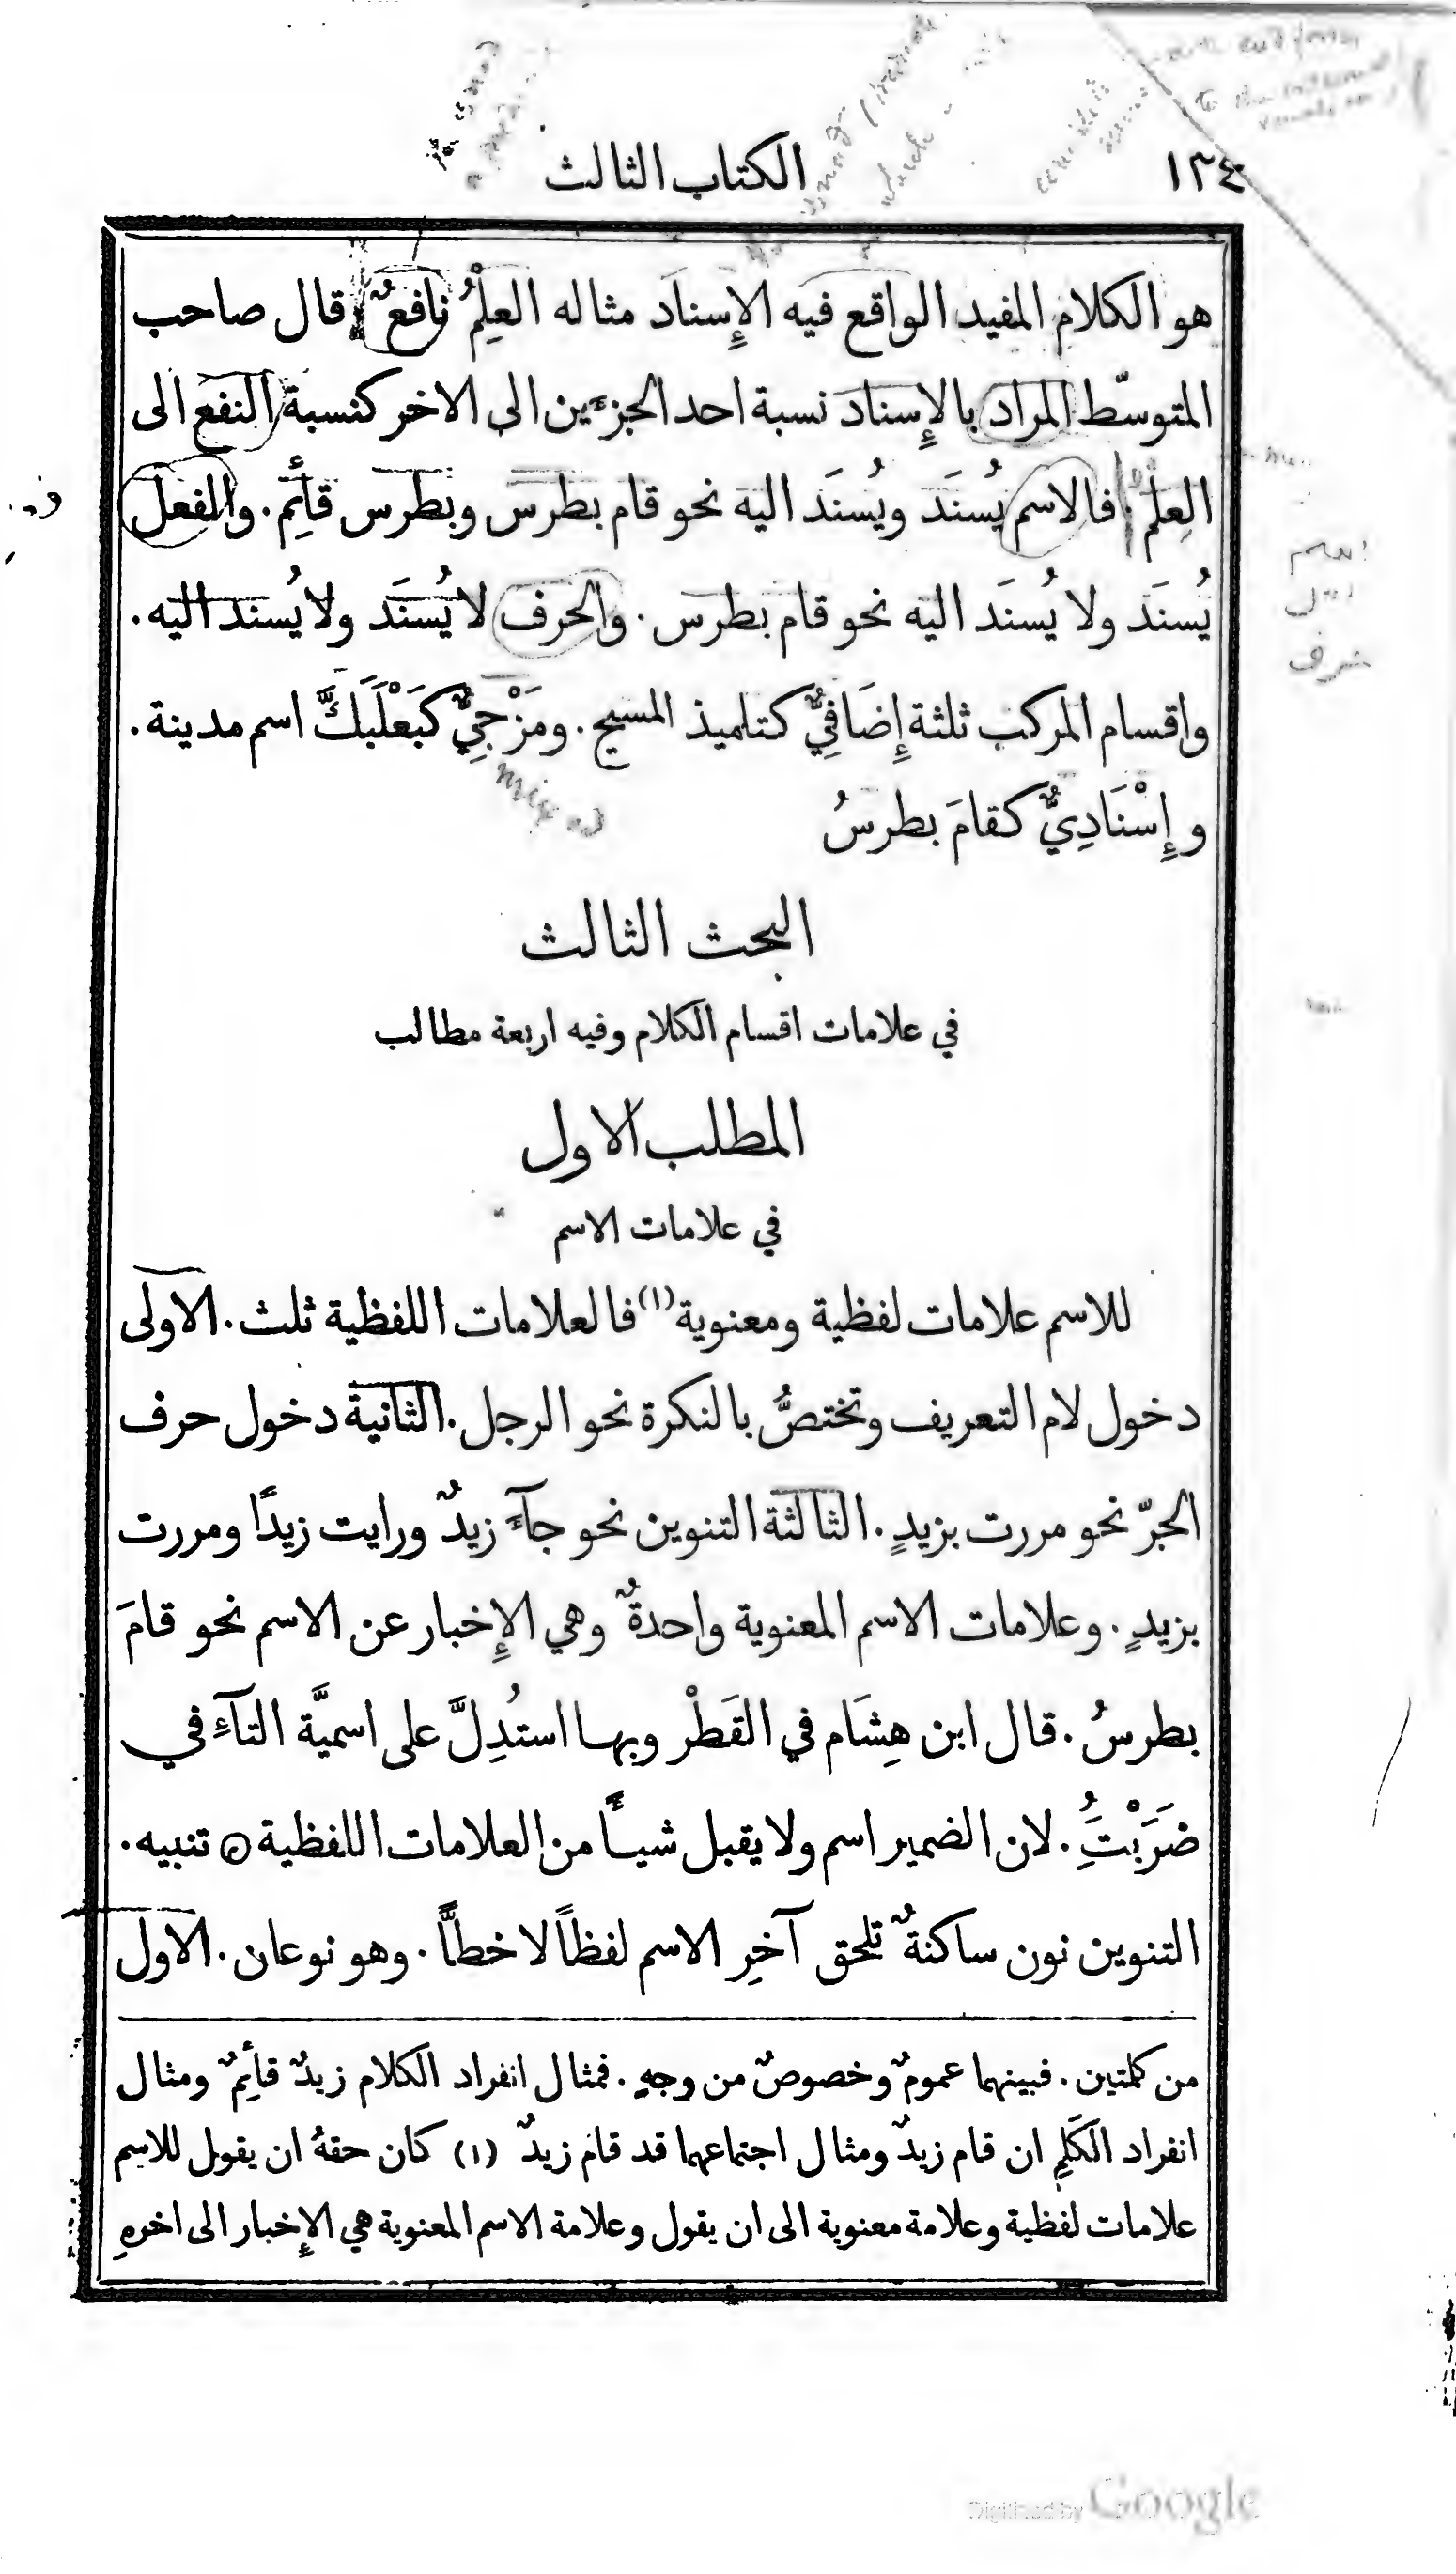 ١٣٤ الكتاب الثالث
هو الكلام المفيد الواقع فيه الإِسناد مثاله العِلْمُ نافعٌ. قال صاحب
المتوسّط المراد بالإِسناد نسبة احد الجزءَين الى الاخر كنسبة النفع الى
العِلم. فالاسم يُسنَد ويُسنَد اليه نحو قام بطرس وبطرس قائِم. والفعل
يُسنَد ولا يُسنَد اليه نحو قام بطرس. والحرف لا يُسنَد ولا يُسند اليه.
واقسام المركب ثلثة إِضَافِيٌّ كتلميذ المسيح. ومَزْجِيٌّ كبَعْلَبَكَّ اسم مدينة.
وإِسْنَادِيٌّ كقامَ بطرسُ
البحث الثالث
في علامات اقسام الكلام وفيه اربعة مطالب
المطلب الاول
في علامات الاسم
للاسم علامات لفظية ومعنوية (١) فالعلامات اللفظية ثلث. الاولى
دخول لام التعريف وتختصُّ بالنكرة نحو الرجل. الثانية دخول حرف
الجرّ نحو مررت بزيدٍ. الثالثة التنوين نحو جآءَ زيدٌ ورايت زيدًا ومررت
بزيدٍ. وعلامات الاسم المعنوية واحدةٌ وهي الإِخبار عن الاسم نحو قامَ
بطرسُ. قال ابن هِشَام في القَطْر وبها استُدِلَّ على اسميَّة التآءِ في
ضَرَبْتَُِ. لان الضمير اسم ولا يقبل شيـأً من العلامات اللفظية ۞ تنبيه.
التنوين نون ساكنةٌ تلحق آخِر الاسم لفظاً لا خطاًّ. وهو نوعان. الاول
من كلمتين. فبينهما عمومٌ وخصوصٌ من وجهٍ. فمثال انفراد الكلام زيدٌ قائِمٌ ومثال
انفراد الكَلِمِ ان قام زيدٌ ومثال اجتماعهما قد قام زيدٌ (١) كان حقهُ ان يقول للاسم
علامات لفظية وعلامة معنوية الى ان يقول وعلامة الاسم المعنوية هي الإِخبار الى اخرهِ
mixed
Digitized by Google